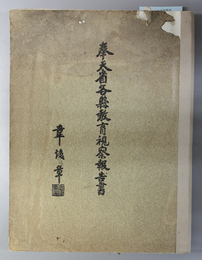 奉天省各縣教育視察報告書
韋煥章